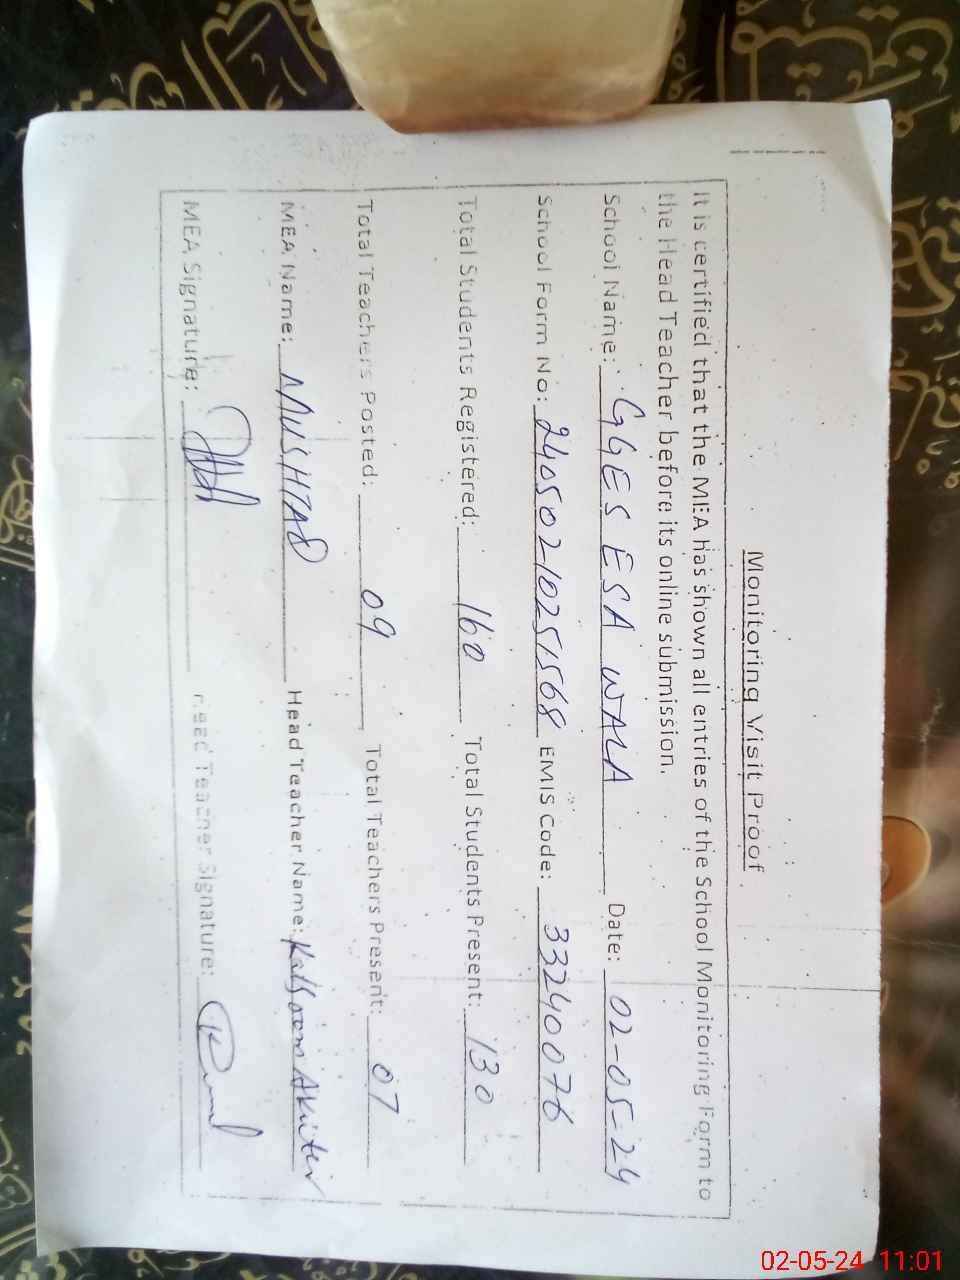 Monitoring Visit Proof
It is certified that the MEA has shown all entries of the School Monitoring Form to
the Head Teacher before its online submission.
School Name: GGES ESA WALA Date: 02-05-24
School Form No: 240502-10251568 EMIS Code: 33240076
Total Students Registered: 160 Total Students Present: 130
Total Teachers Posted: 09 Total Teachers Present: 07
MEA Name: MUSHTAQ Head Teacher Name: Kalsoom Akhter
MEA Signature: Head Teacher Signature:
02-05-24 11:01